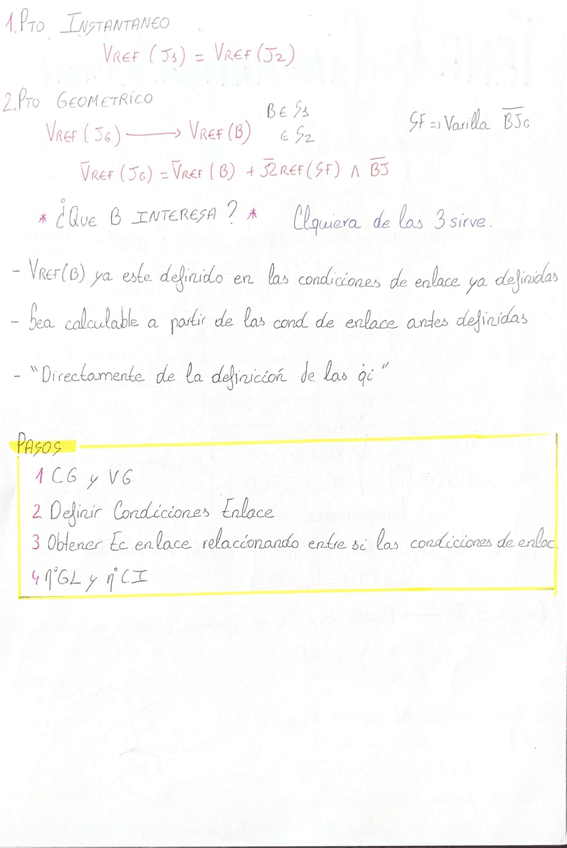 1. PTO INSTANTANEO
VREF (J1) = VREF (J2)
2. PTO GEOMETRICO
VREF (JG) → VREF (B)
B ∈ S1
∈ S2
SF => Varilla BJG
V̄REF (JG) = V̄REF (B) + Ω̄REF (SF) ∧ BJ
* ¿QUE B INTERESA? * Clquiera de las 3 sirve.
- VREF(B) ya este definido en las condiciones de enlace ya definidas
- Sea calculable a partir de las cond de enlace antes definidas
- "Directamente de la definición de las q̇i"
PASOS
1 CG y VG
2 Definir Condiciones Enlace
3 Obtener Ec enlace relacionando entre si las condiciones de enlac
4 nºGL y nºCI